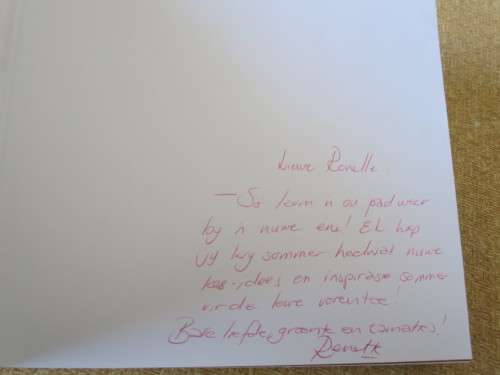 Liewe Renette
— So leun 'n ou pad weer
by 'n nuwe ene! Ek hop
jy kry sommer heelwat nuwe
kos-idees en inspirasie sommer
vir die lewe vorentoe!
Baie liefde, groente en
Renette